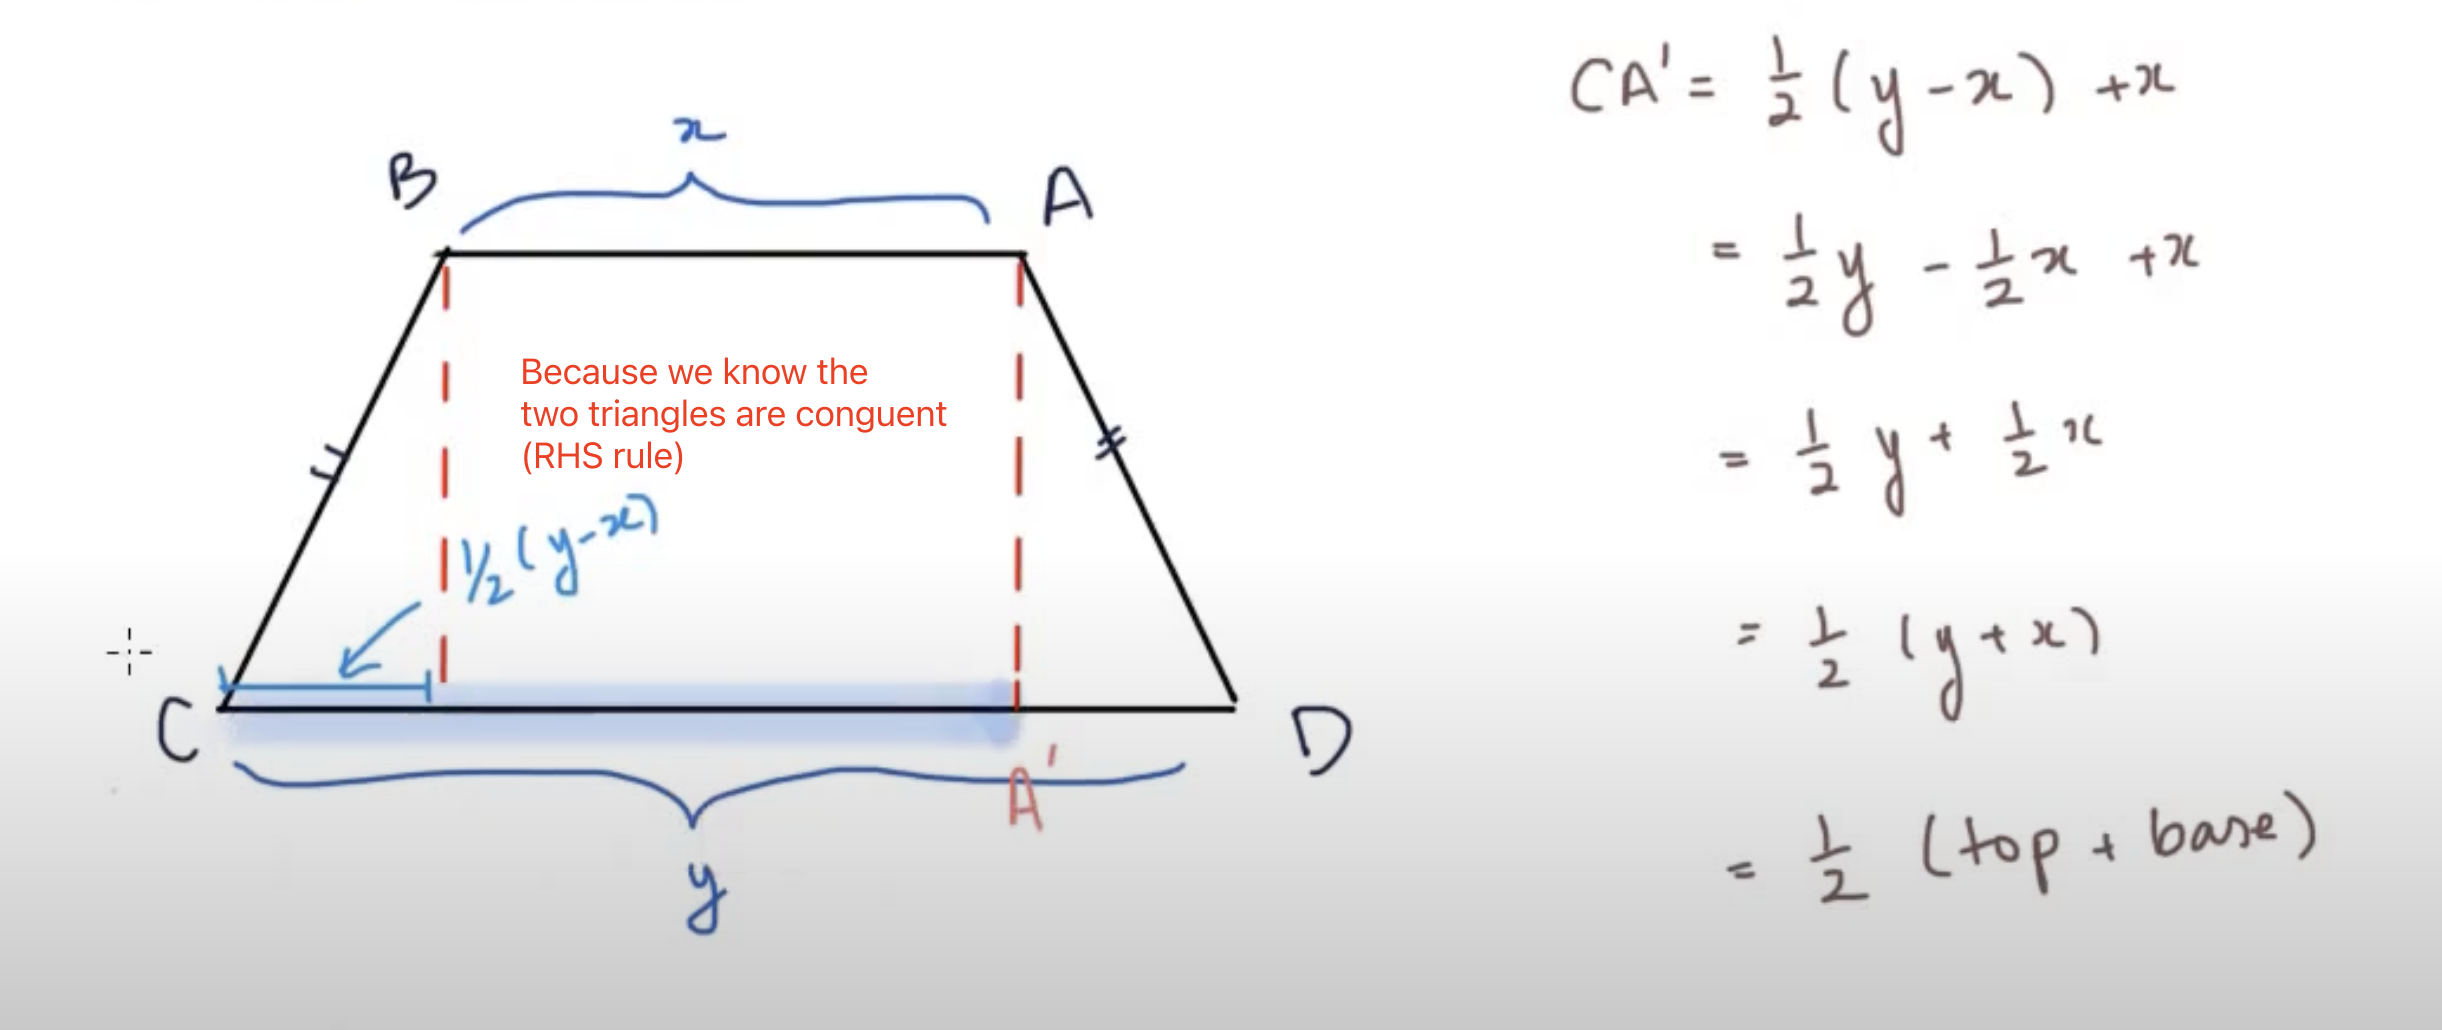 x
B
A
Because we know the
two triangles are conguent
(RHS rule)
1/2 (y-x)
C
D
A'
y
CA' = 1/2 (y - x) + x
= 1/2 y - 1/2 x + x
= 1/2 y + 1/2 x
= 1/2 (y + x)
= 1/2 (top + base)